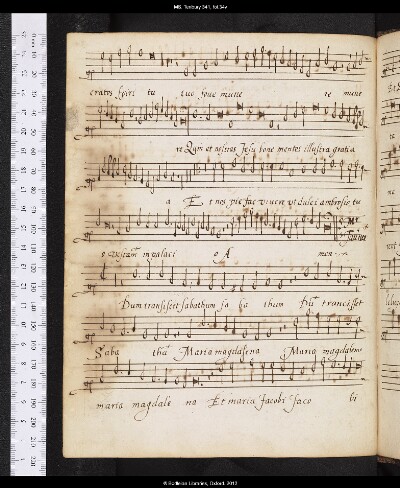 MS. Tenbury 341, fol.34v
cratos spiri tu tuo foue mune re mune
re Qum et nostras Jesu bone mentes illustra gratia
a Et nos pie fac viuere ut dulci ambrosio tu
o in galaci o A men
Dum transisset sabathum sa ba thum Dum transisset
Saba thum Maria magdalena Maria magdalena
maria magdale na Et maria Jacobi Jaco bi
© Bodleian Libraries, Oxford, 2012